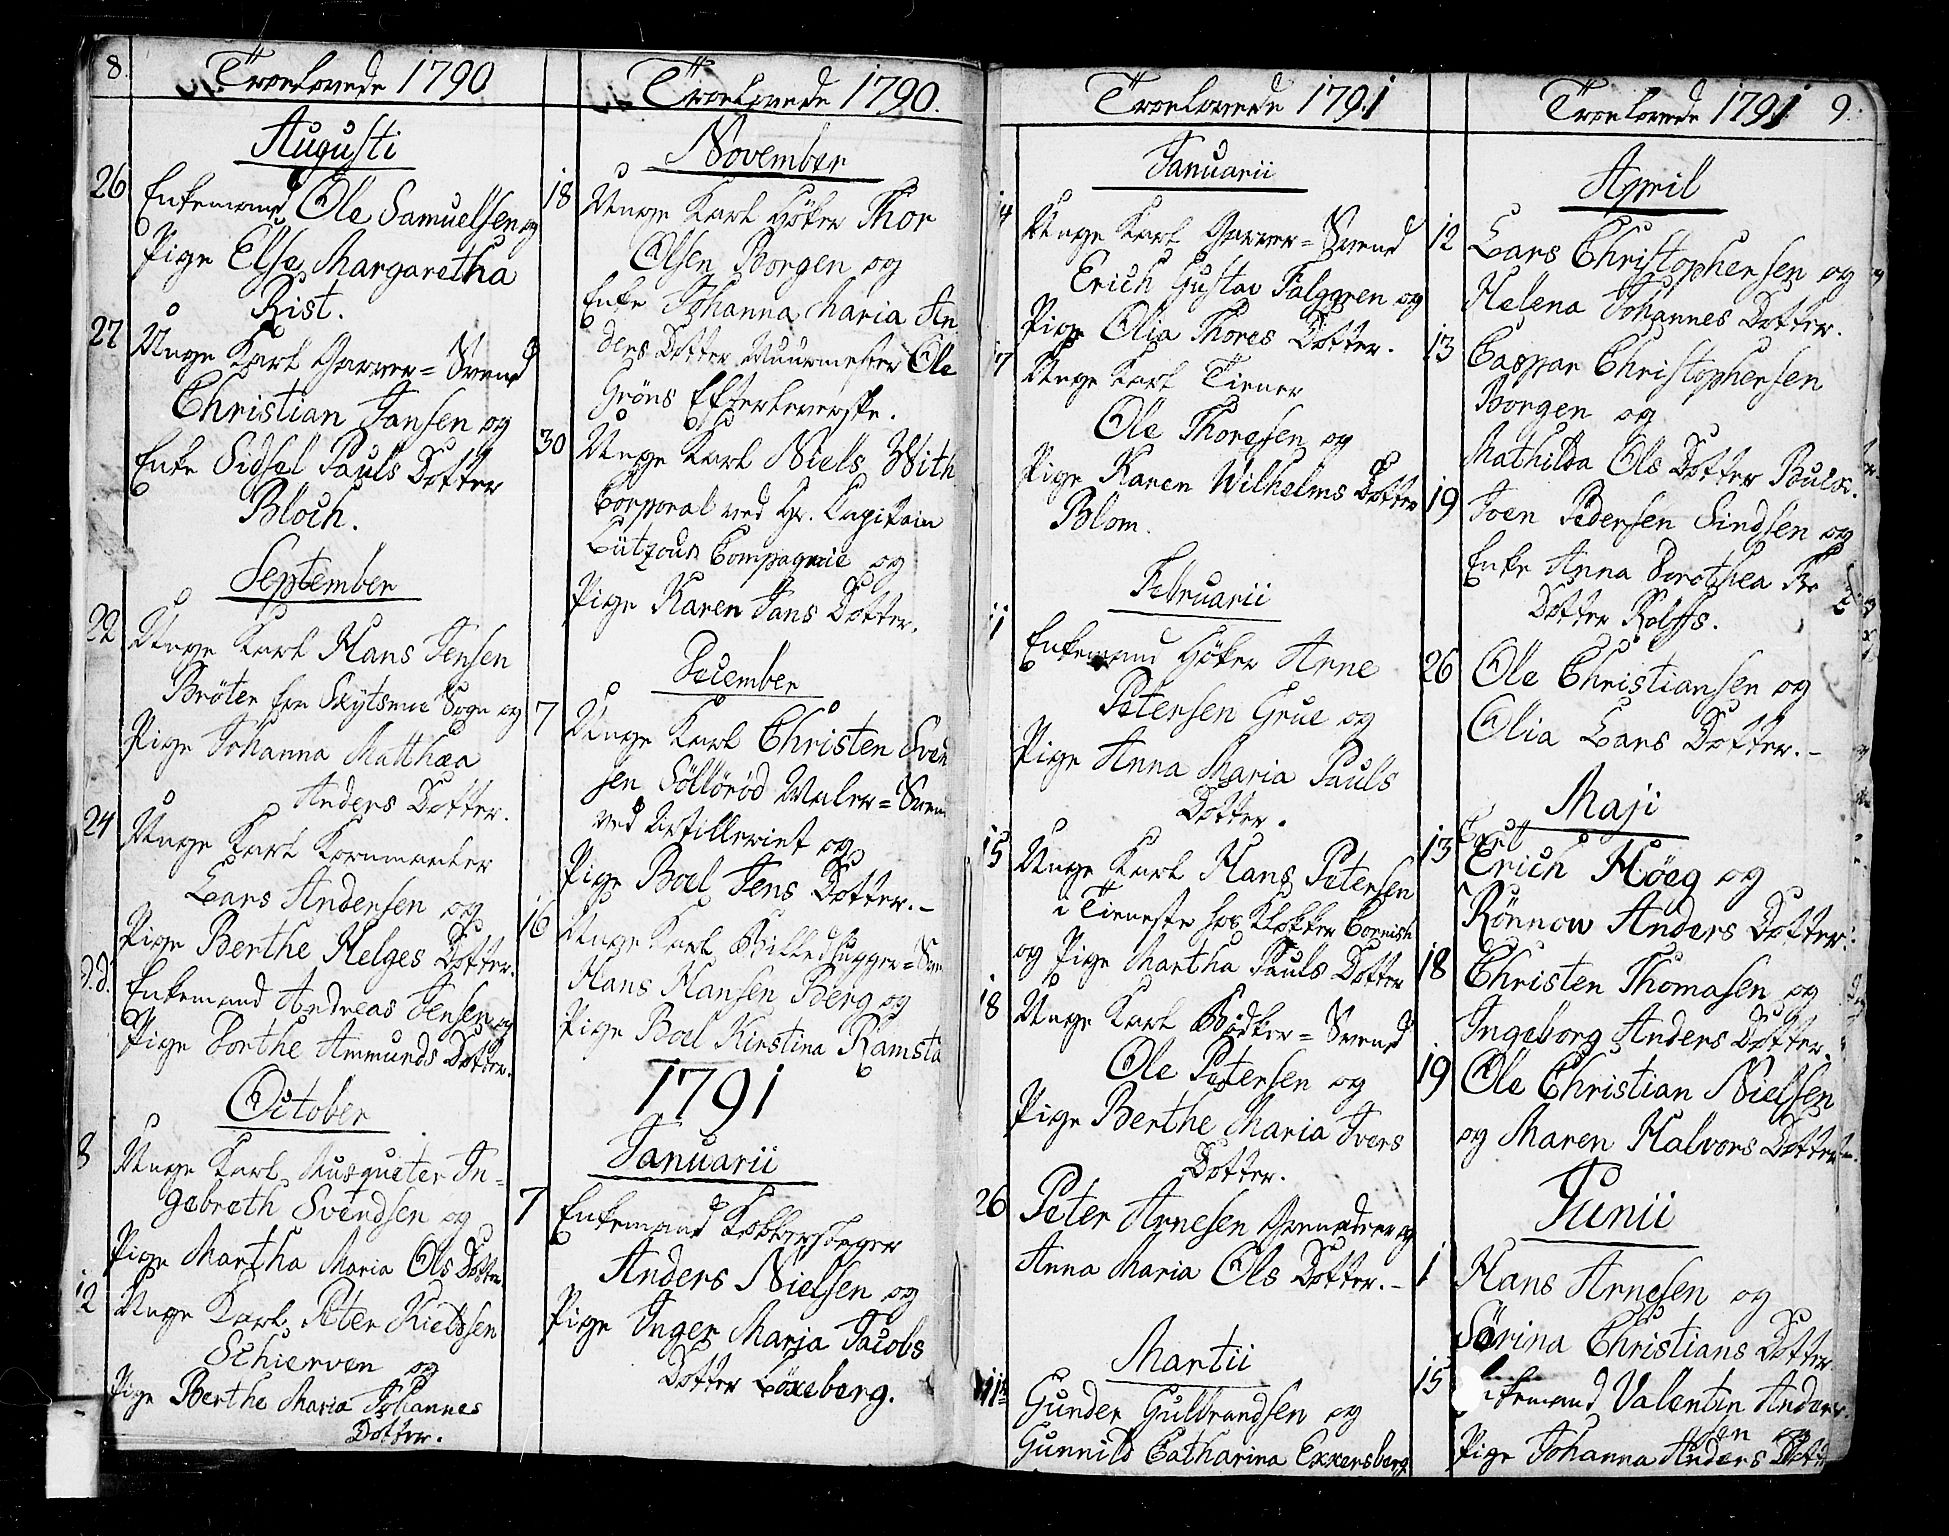 8.
Troelovede 1790
Augusti
26 Enkemand Ole Samuelsen og
Pige Else Margaretha
Rist.
27 Unge Karl Garver=Svend
Christian Jansen og
Enke Sidsel Pauls Dotter
Bloch.
September
22 Unge Karl Hans Jensen
Bröten fra Skytsmu Sogn og
Pige Johanna Matthæa
Anders Dotter.
24 Unge Karl Kornmaaler
Lars Andersen og
Pige Berthe Helges Dotter.
d.d. Enkemand Andreas Jensen og
Pige Dorthe Ammunds Dotter.
October
8 Unge Karl Musqueter In=
gebreth Svendsen og
Pige Martha Maria Ols Dotter
12 Unge Karl Peter Kieldsen
Schierven og
Pige Berthe Maria Johannes
Dotter.
Troelovede 1790.
November
18 Unge Karl Höker Thor
Olsen Borgen og
Enke Johanna Maria An
ders Dotter Muurmester Ole
Gröns Efterleverske.
30 Unge Karl Niels With
Corporal ved Hr. Capitain
Lützous Compagnie og
Pige Karen Jans Dotter.
December
7 Unge Karl Christen Sven
sen Söllöröd Maler=Sven
ved Artilleriet og
Pige Boel Jens Dotter.-
16 Unge Karl Billedhugger=Sve
Hans Hansen Berg og
Pige Boel Kirstina Ramsta
1791
Januarii
7 Enkemand Kobberslager
Anders Nielsen og
Pige Inger Maria Jacobs
Dotter Löxeberg.
Troelovede 1791
Januarii
14 Unge Karl Garver=Svend
Erich Gustav Falggren og
Pige Olia Thores Dotter.
17 Unge Karl Tiener
Ole Thoresen og
Pige Karen Wilhelms Dotter
Blom.
Februarii
11 Enkemand Höker Arne
Petersen Grue og
Pige Anna Maria Pauls
Dotter.
15 Unge Karl Hans Petersen
i Tieneste hos Klokker Cornish
og Pige Martha Pauls Dotter
18 Unge Karl Bödker=Svend
Ole Petersen og
Pige Berthe Maria Ivers
Dotter.
26 Peter Arnesen Grenadeer og
Anna Maria Ols Dotter.-
Martii
11 Gunder Gulbrandsen og
Gunnild Catharina Ekkersberg
Troelovede 1791 9.
April
12 Lars Christophersen og
Helena Johannes Dotter.
13 Caspar Christophersen
Borgen og
Mathilda Ols Dotter Bulx.
19 Iven Pedersen Lindsen og
Enke Anna Dorothea Br
Dotter Rolffs.
26 Ole Christiansen og
Olia Lars Dotter.-
Maji
13 Carl
Erich Höeg og
Rönnow Anders Dotter.
18 Christen Thomasen og
Ingeborg Anders Dotter.
19 Ole Christian Nielsen
og Maren Halvors Dotter
Junii
1 Hans Arnesen og
Sörina Christians Dotter
15 Enkemand Valentin Anders
sen og
Pige Johanna Anders Dott